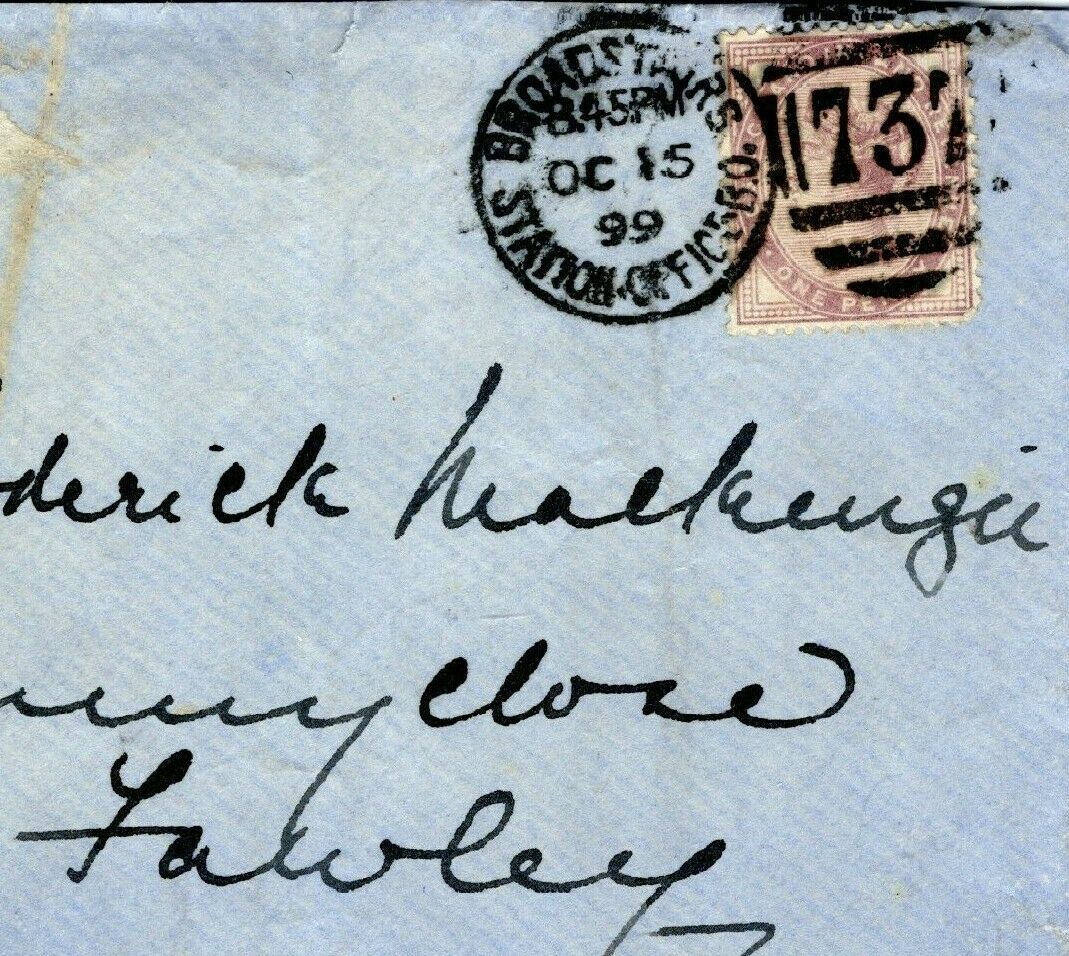 BROADSTAIRS
8.45PM
OC 15
99
STATION.OFFICE B.O.
737
ONE PE
oderick Mackenzie
unnyclose
Fawley